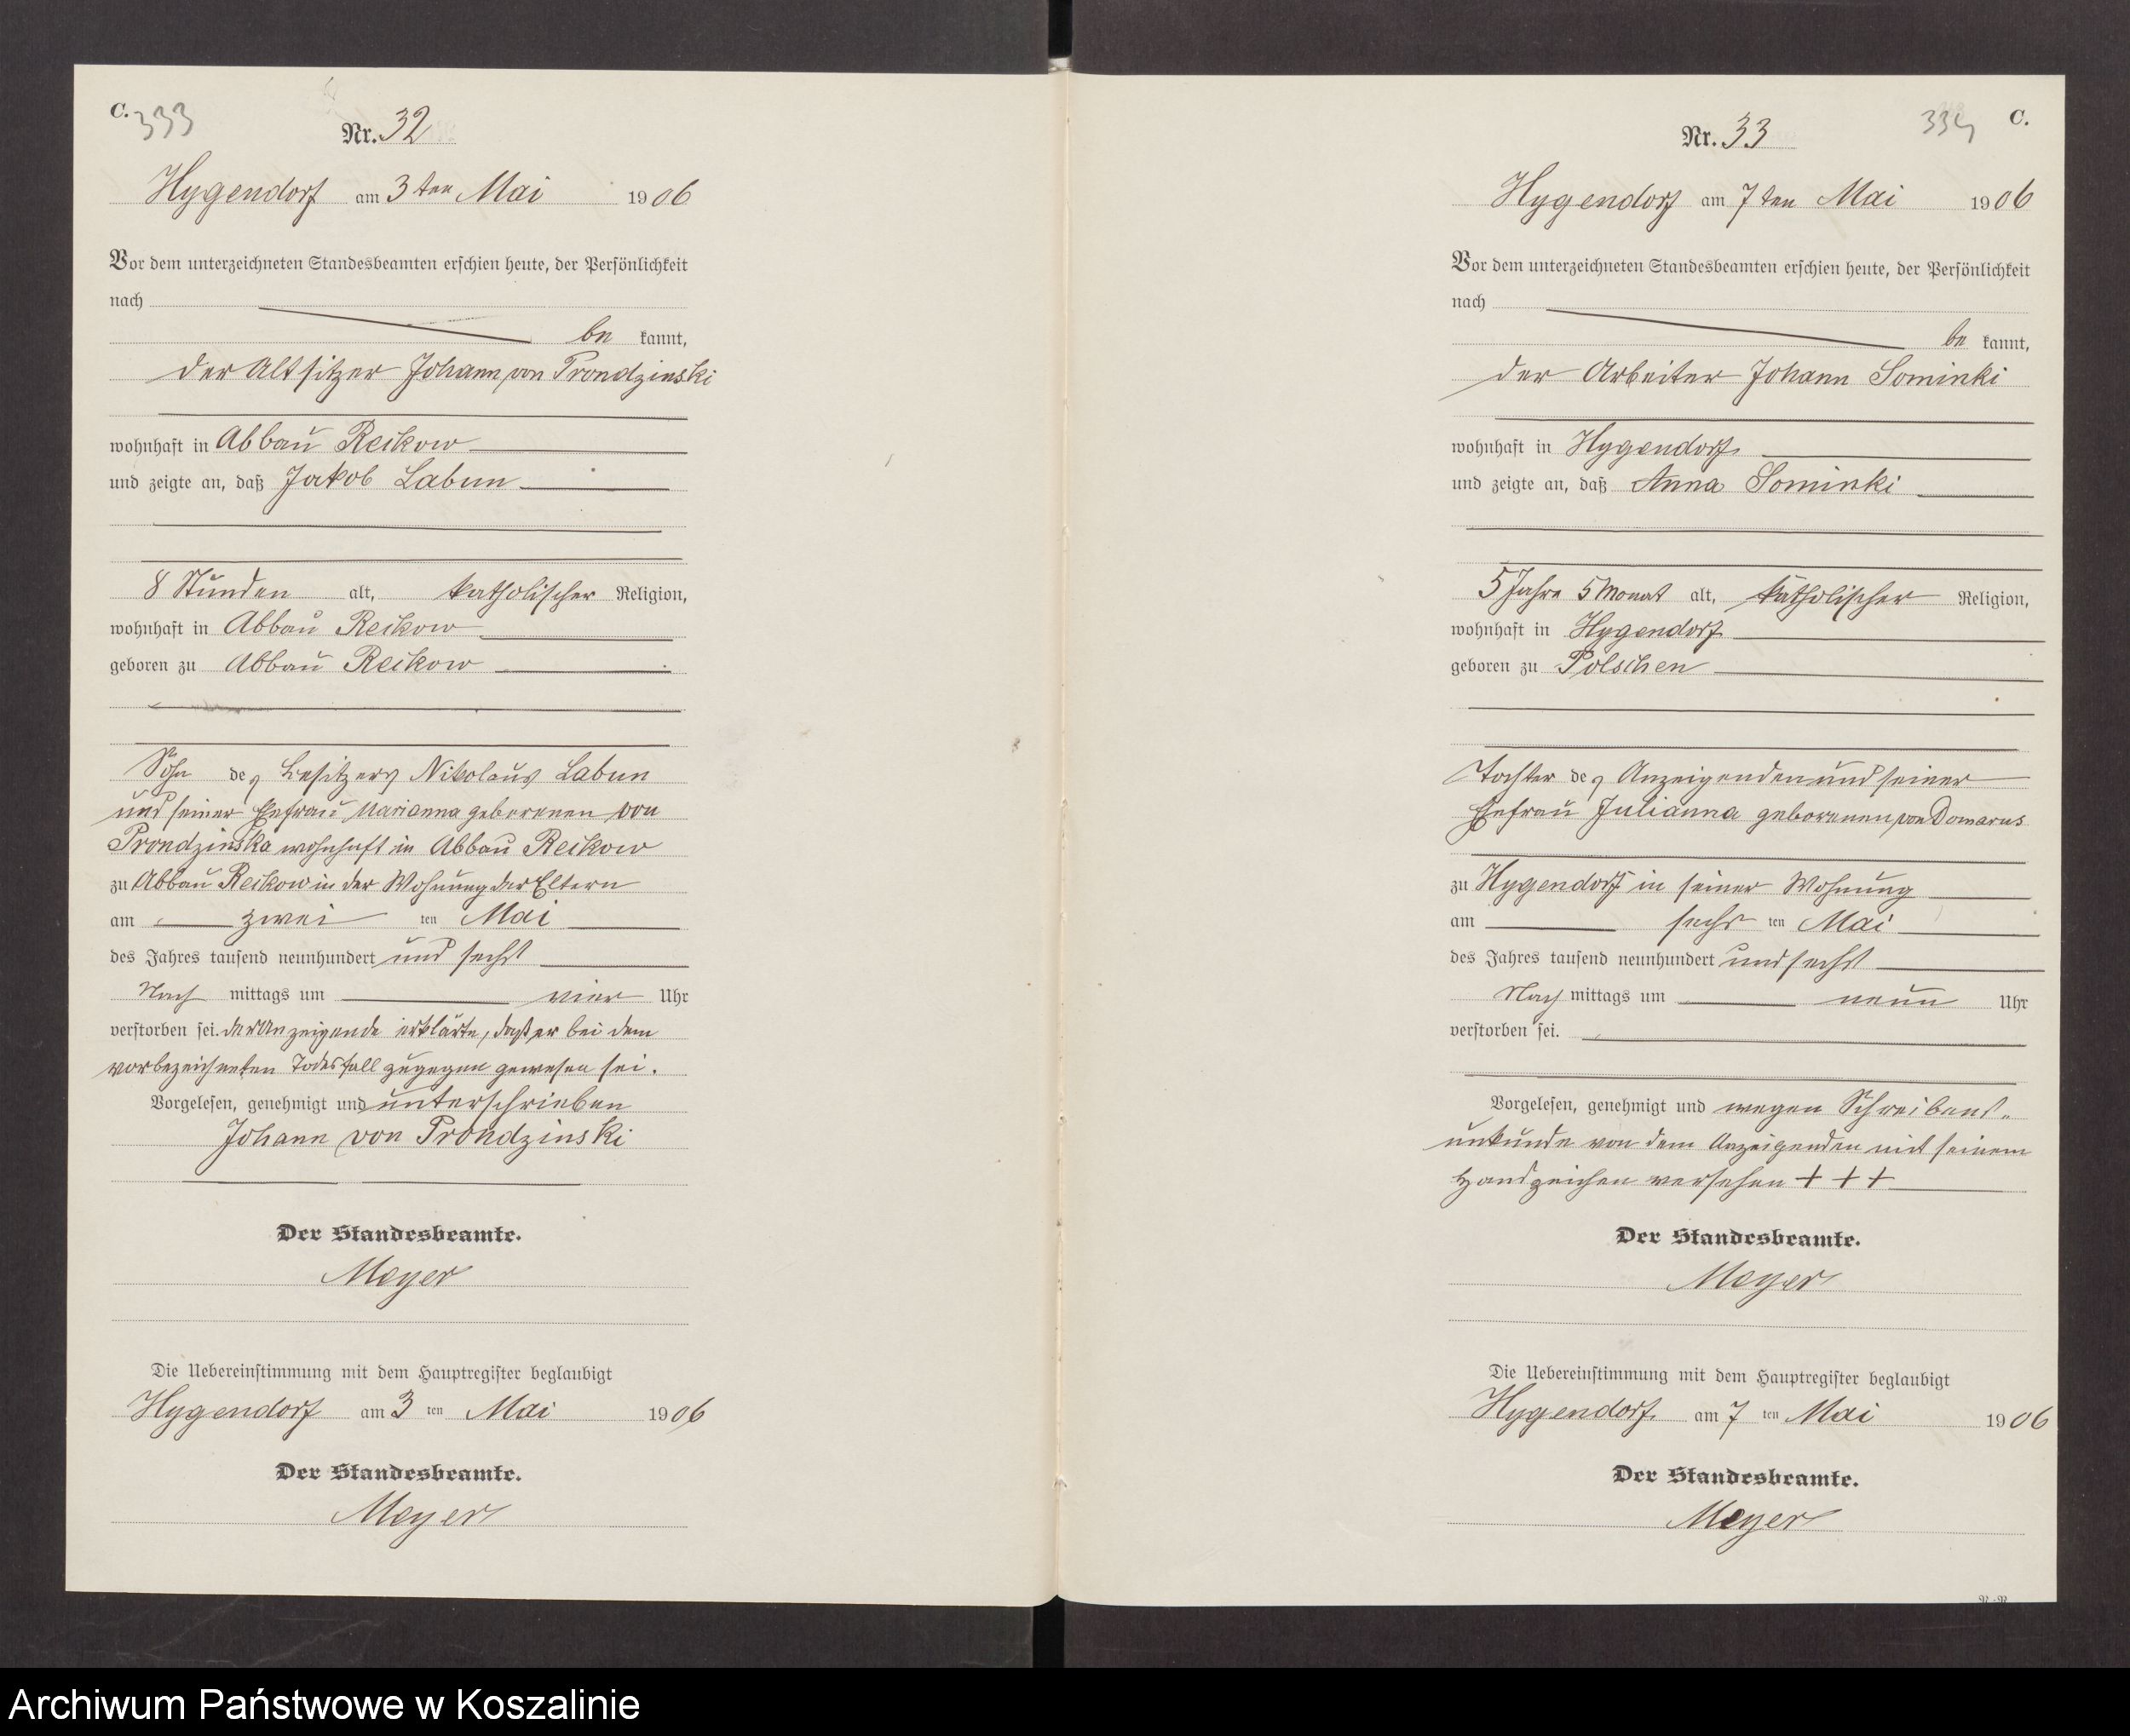 C. 333
Nr. 32
Hygendorf am 3ten Mai 1906
Vor dem unterzeichneten Standesbeamten erschien heute, der Persönlichkeit
nach
be kannt,
der Altsitzer Johann von Prondzinski
wohnhaft in Abbau Reikow
und zeigte an, daß Jakob Labun
8 Stunden alt, katholischer Religion,
wohnhaft in Abbau Reikow
geboren zu Abbau Reikow
Sohn des Besitzers Nikolaus Labun
und seiner Ehefrau Marianna geborenen von
Prondzinska wohnhaft in Abbau Reikow
zu Abbau Reikow in der Wohnung der Eltern
am zwei ten Mai
des Jahres tausend neunhundert und sechs
Nach mittags um vier Uhr
verstorben sei. der Anzeigende erklärte, daß er bei dem
vorbezeichneten Todesfall zugegen gewesen sei.
Vorgelesen, genehmigt und unterschrieben
Johann von Prondzinski
Der Standesbeamte.
Meyer
Die Uebereinstimmung mit dem Hauptregister beglaubigt
Hygendorf am 3 ten Mai 1906
Der Standesbeamte.
Meyer
334 C.
Nr. 33
Hygendorf am 7ten Mai 1906
Vor dem unterzeichneten Standesbeamten erschien heute, der Persönlichkeit
nach
be kannt,
der Arbeiter Johann Sominki
wohnhaft in Hygendorf
und zeigte an, daß Anna Sominki
5 Jahre 5 Monat alt, katholischer Religion,
wohnhaft in Hygendorf
geboren zu Polschen
Tochter des Anzeigenden und seiner
Ehefrau Julianna geborenen von Domarus
zu Hygendorf in seiner Wohnung
am sechs ten Mai
des Jahres tausend neunhundert und sechs
Nach mittags um neun Uhr
verstorben sei.
Vorgelesen, genehmigt und wegen Schreibens-
unkunde von dem Anzeigenden mit seinem
Handzeichen versehen + + +
Der Standesbeamte.
Meyer
Die Uebereinstimmung mit dem Hauptregister beglaubigt
Hygendorf am 7 ten Mai 1906
Der Standesbeamte.
Meyer
Archiwum Państwowe w Koszalinie